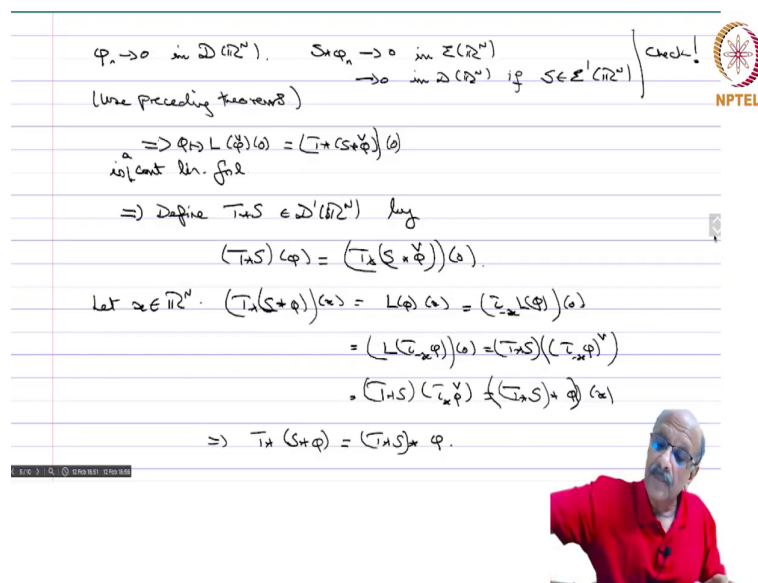 φₙ → 0 in 𝒟(ℝᴺ). S*φₙ → 0 in ℰ(ℝᴺ)
→ 0 in 𝒟(ℝᴺ) if S ∈ ℰ'(ℝᴺ)
Check!
(Use preceding theorems)
NPTEL
=> φ ↦ L(φ̌)(0) = (T*(S*φ̌))(0)
is a cont lin. fnl
=) Define T*S ∈ 𝒟'(ℝᴺ) by
(T*S)(φ) = (T*(S*φ̌))(0).
Let x ∈ ℝᴺ. (T*(S*φ))(x) = L(φ)(x) = (τ₋ₓL(φ))(0)
= (L(τ₋ₓφ))(0) = (T*S)((τ₋ₓφ)ˇ)
= (T*S)(τₓφ̌) = ((T*S)*φ)(x)
=> T*(S*φ) = (T*S)*φ.
5/10 12 Feb 16:51 12 Feb 16:56